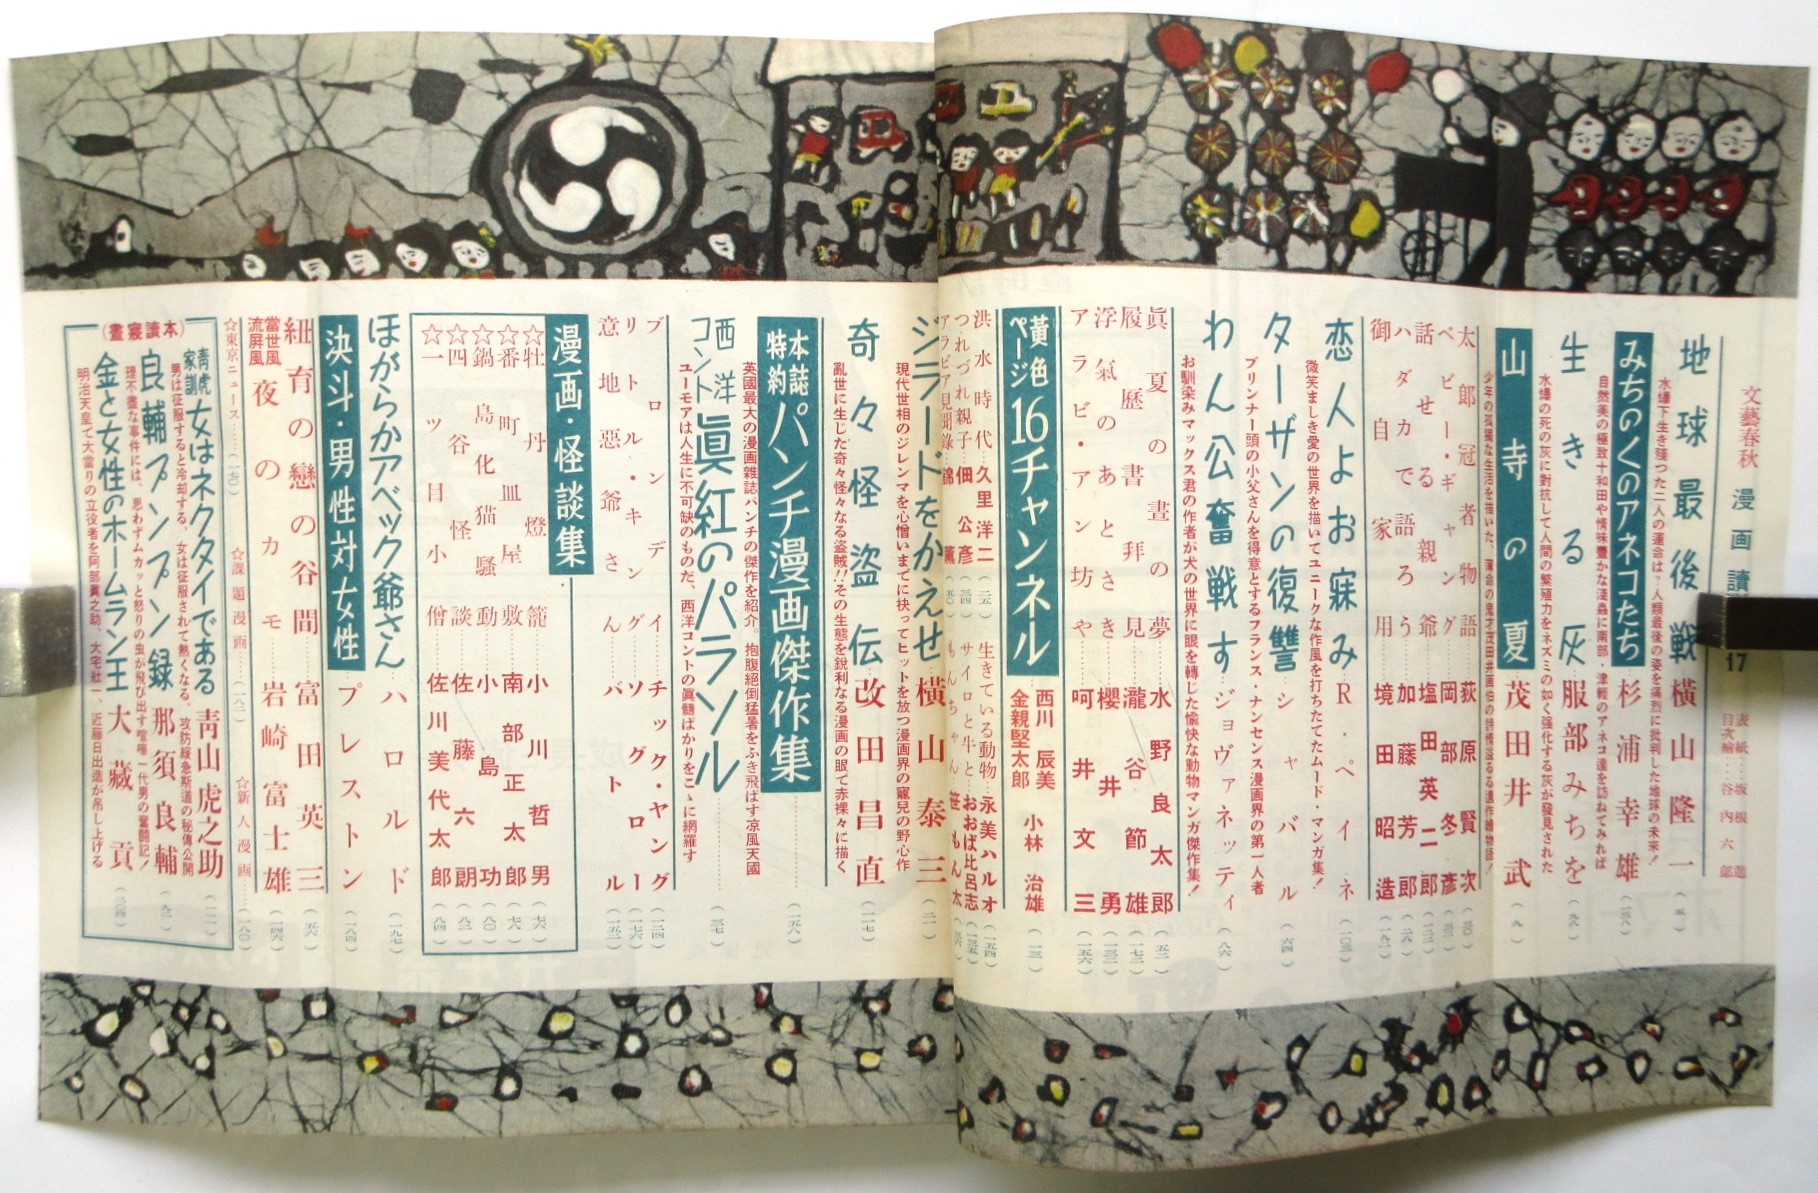 文藝春秋 漫画讀
17
表紙……坂根進
目次繪……谷内六郎
地球最後の戦 横山隆一
水爆下生き殘つた二人の運命は?人類最後の姿を痛烈に批判した地球の未来!
みちのくのアネコたち 杉浦幸雄
自然美の極致十和田や情味豊かな淺蟲に南部・津軽のアネコ達を訪ねてみれば
生きる灰 服部みちを
水爆の死の灰に對抗して人間の繁殖力をネズミの如く强化する灰が發見された
山寺の夏 茂田井武
太郎冠者物語 荻原賢次
ベビー・ギャング 岡部冬彦
話せる親爺 塩田英二郎
ハダカで語ろう 加藤芳郎
御自家用 境田昭造
恋人よお寐み R・ペイネ
微笑ましき愛の世界を描いてユニークな作風を打ちたてたムード・マンガ集!
ターザンの復讐 シャバル
プリンナー頭の小父さんを得意とするフランス・ナンセンス漫画界の第一人者
わん公奮戦す ジョヴァネッティ
お馴染みマックス君の作者が犬の世界に眼を轉じた愉快な動物マンガ傑作集!
眞夏の晝の夢 水野良太郎
履歴書拜見 瀧谷節雄
浮氣のあとさき 櫻井勇
アラビ・アン坊や 呵井文三
黄色ページ 16チャンネル
西川辰美
金親堅太郎
小林治雄
洪水時代 久里洋二 (二五)
つれづれ親子 佃公彦 (三四)
アラビア見聞錄 錦薫
生きている動物 永美ハルオ
サイロと牛と おおば比呂志
もんちゃん 笹もん太
ジラードをかえせ 横山泰三
現代世相のジレンマを心憎いまでに抉ってヒットを放つ漫画界の寵兒の野心作
奇々怪盗伝 改田昌直
亂世に生じた奇々怪々なる盗賊!!その生態を銳利なる漫画の眼で赤裸々に描く
本誌特約 パンチ漫画傑作集
英國最大の漫画雜誌パンチの傑作を紹介。抱腹絕倒猛暑をふき飛ばす凉風天國
西洋コント 眞紅のパラソル
ユーモアは人生に不可缺のものだ、西洋コントの眞髓ばかりをこゝに網羅す
ブロンディ チック・ヤング
リトル・キング ソグロー
意地惡爺さん バットル
漫画・怪談集
☆牡丹燈籠 小川哲男 (七六)
☆番町皿屋敷 南部正太郎 (七八)
☆鍋島化猫騒動 小島功 (八〇)
☆四谷怪談 佐藤六朗 (八二)
☆一ツ目小僧 佐川美代太郎 (八四)
ほがらかアベック爺さん ハロルド
決斗・男性対女性 プレストン
紐育の戀の谷間 富田英三
當世風流屏風 夜のカモ 岩崎富士雄
☆東京ニュース ☆課題漫画 ☆新人漫画
(晝寝讀本)
靑虎家訓 女はネクタイである 靑山虎之助
男は征服すると冷却する、女は征服されて熱くなる、攻防線急斯道の秘傳公開
良輔プンプン録 那須良輔
理不盡な事件には、思わずムカッと怒りの虫が飛び出す喧嘩一代男の奮闘記!
金と女性のホームラン王 大藏貢
明治天皇で大當りの立役者を阿部眞之助、大宅壯一、近藤日出造が吊し上げる